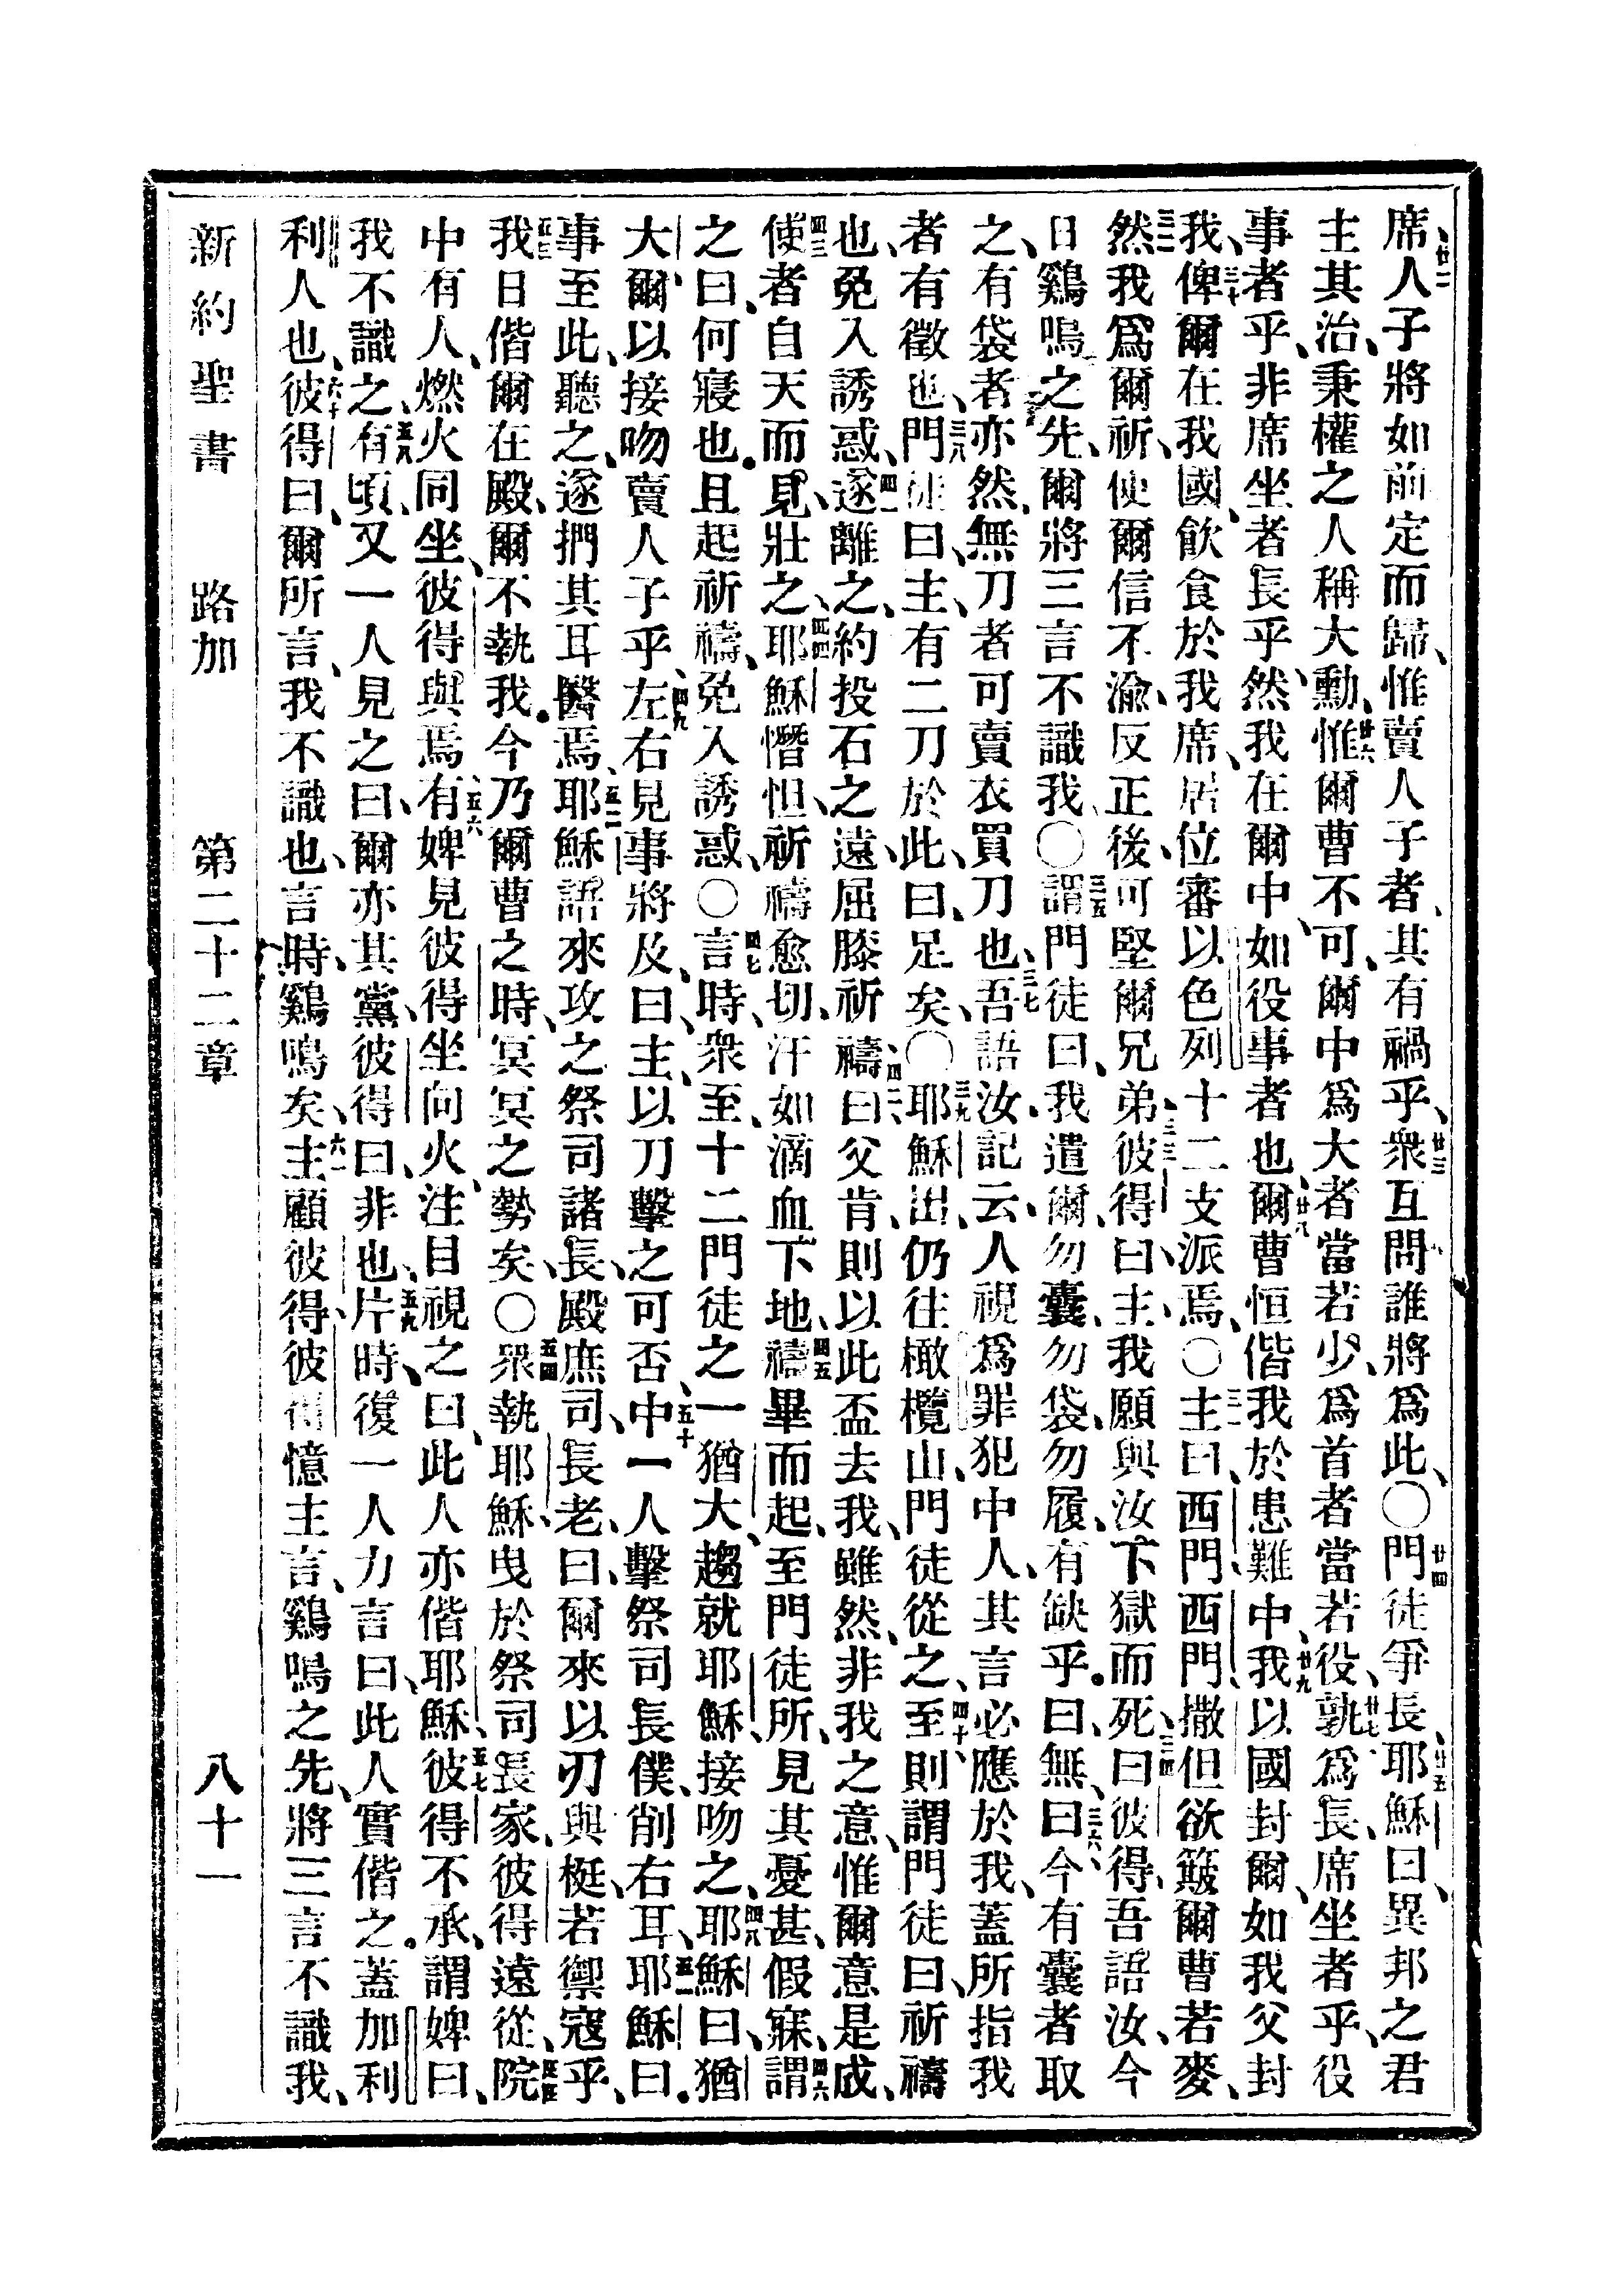 席、人子將如前定而歸、惟賣人子者、其有禍乎、衆互問誰將爲此、〇門徒爭長、耶穌曰、異邦之君
主其治、秉權之人稱大勳、惟爾曹不可、爾中爲大者當若少、爲首者當若役、孰爲長、席坐者乎、役
事者乎、非席坐者長乎、然我在爾中、如役事者也、爾曹恒偕我於患難中、我以國封爾、如我父封
我、俾爾在我國、飮食於我席、居位審以色列十二支派焉、〇主曰、西門、西門、撒但欲簸爾曹若麥、
然我爲爾祈、使爾信不渝、反正後、可堅爾兄弟、彼得曰、主、我願與汝下獄而死、曰、彼得、吾語汝、今
日鷄鳴之先、爾將三言不識我、〇謂門徒曰、我遣爾、勿囊、勿袋、勿履、有缺乎。曰、無、曰、今有囊者取
之、有袋者亦然、無刀者可賣衣買刀也、吾語汝、記云、人視爲罪犯中人、其言必應於我、蓋所指我
者有徵也、門徒曰、主、有二刀於此、曰、足矣、〇耶穌出、仍往橄欖山、門徒從之、至則謂門徒曰、祈禱
也、免入誘惑、遂離之、約投石之遠、屈膝祈禱、曰、父肯、則以此盃去我、雖然、非我之意、惟爾意是成、
使者自天而見、壯之、耶穌憯怛、祈禱愈切、汗如滴血下地、禱畢而起、至門徒所、見其憂甚假寐、謂
之曰、何寢也。且起祈禱、免入誘惑、〇言時、衆至、十二門徒之一猶大、趨就耶穌、接吻之、耶穌曰、猶
大、爾以接吻賣人子乎、左右見事將及、曰、主、以刀擊之可否、中一人擊祭司長僕、削右耳、耶穌曰。
事至此、聽之、遂捫其耳醫焉、耶穌語來攻之祭司諸長、殿廡司、長老、曰、爾來以刃與梃、若禦寇乎、
我日偕爾在殿、爾不執我。今乃爾曹之時、冥冥之勢矣、〇衆執耶穌、曳於祭司長家、彼得遠從、院
中有人、燃火同坐、彼得與焉、有婢見彼得坐向火、注目視之、曰、此人亦偕耶穌、彼得不承、謂婢曰、
我不識之、有頃、又一人見之曰、爾亦其黨、彼得曰、非也、片時、復一人力言曰、此人實偕之。蓋加利
利人也、彼得曰、爾所言、我不識也、言時、鷄鳴矣、主顧彼得、彼得憶主言、鷄鳴之先、將三言不識我、
新約聖書 路加 第二十二章 八十一